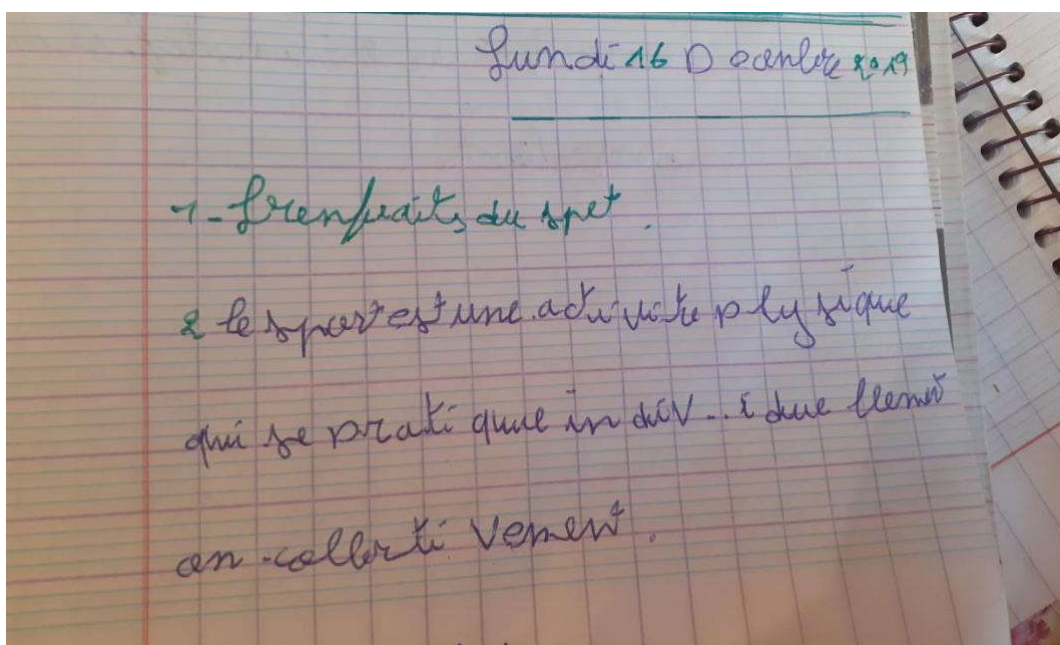 Lundi 16 Decenbre 2019
1- du spet.
2 le sport est une activite plysique
qui se pratiquue indiv..iduellement
on collectivement.